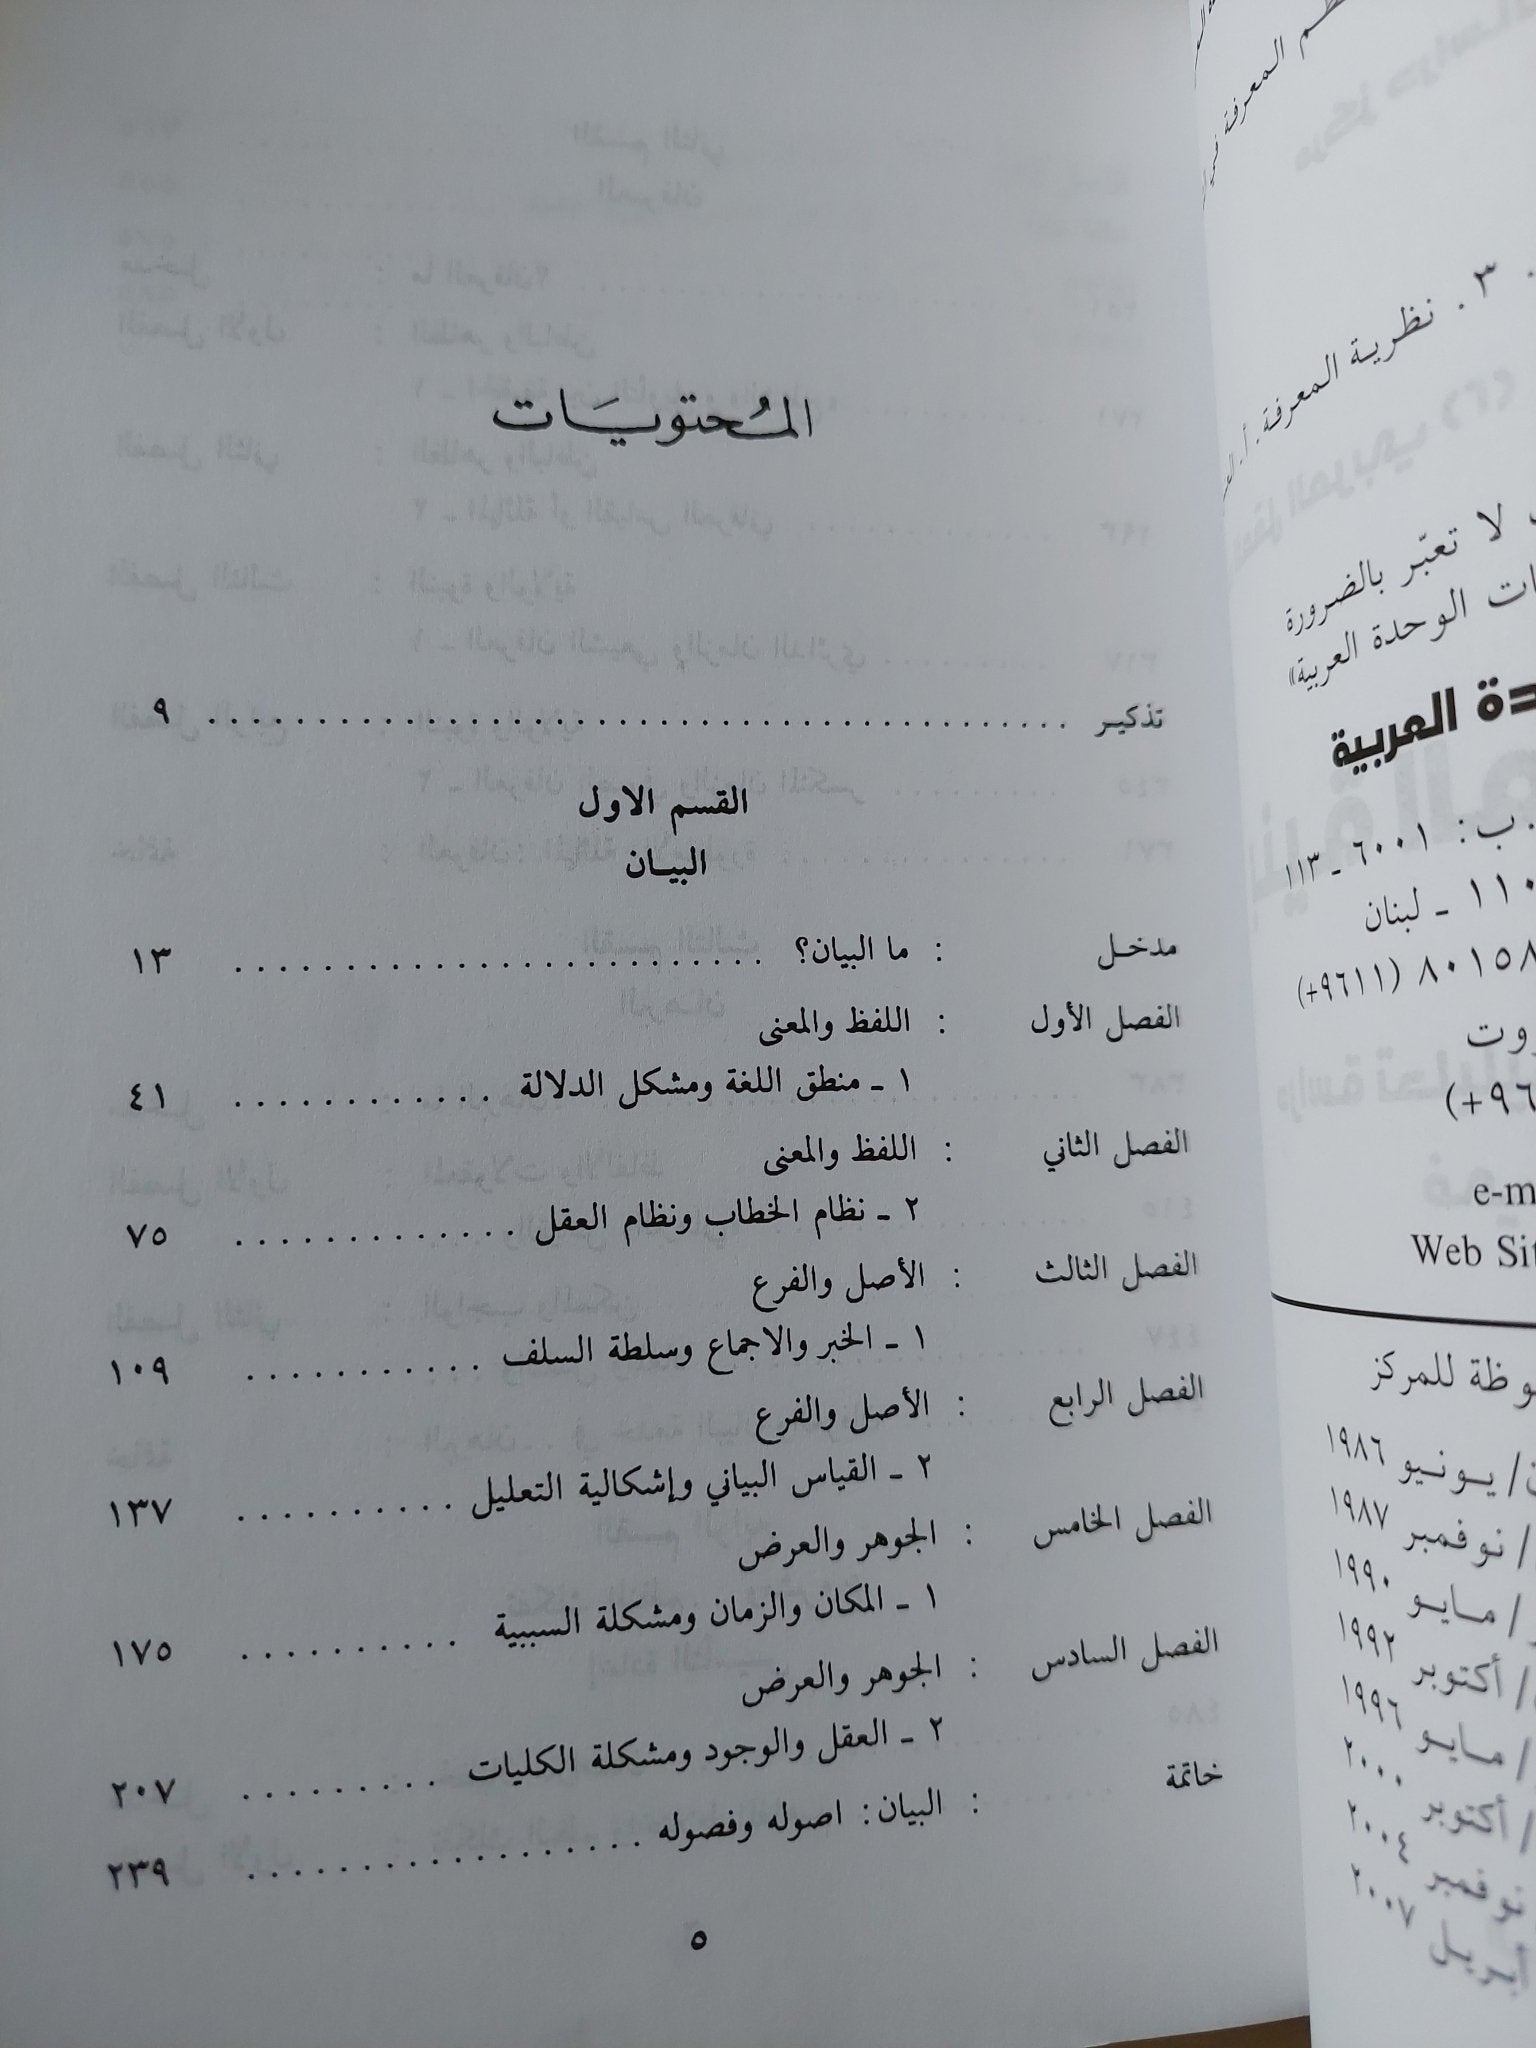 المحتويات
تذكير ........ ٩
القسم الاول
البيان
مدخل : ما البيان؟ ........ ١٣
الفصل الأول : اللفظ والمعنى
١ ـ منطق اللغة ومشكل الدلالة ........ ٤١
الفصل الثاني : اللفظ والمعنى
٢ ـ نظام الخطاب ونظام العقل ........ ٧٥
الفصل الثالث : الأصل والفرع
١ ـ الخبر والاجماع وسلطة السلف ........ ١٠٩
الفصل الرابع : الأصل والفرع
٢ ـ القياس البياني وإشكالية التعليل ........ ١٣٧
الفصل الخامس : الجوهر والعرض
١ ـ المكان والزمان ومشكلة السببية ........ ١٧٥
الفصل السادس : الجوهر والعرض
٢ ـ العقل والوجود ومشكلة الكليات ........ ٢٠٧
خاتمة : البيان: اصوله وفصوله ........ ٢٣٩
٥
المعرفة
٣. نظرية المعرفة. أ.
لا تعبّر بالضرورة
الوحدة العربية»
العربية
ب: ٦٠٠١ ـ ١١٣
ـ لبنان
(+٩٦١١)
Web
للمركز
يونيو ١٩٨٦
/ نوفمبر ١٩٨٧
/ مايو ١٩٩٠
/ أكتوبر ١٩٩٢
/ مايو ١٩٩٦
/ أكتوبر ٢٠٠٠
نوفمبر ٢٠٠٤
أبريل ٢٠٠٧